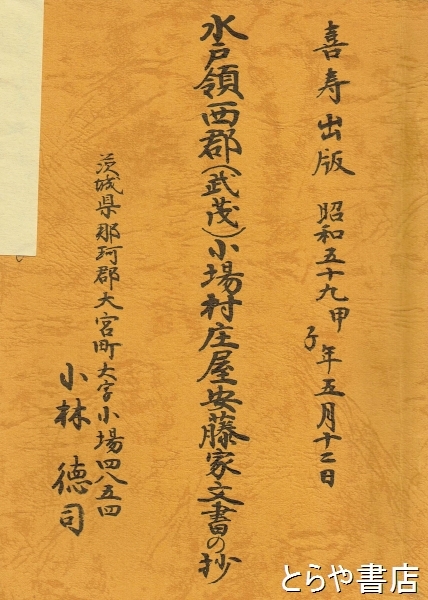 喜寿出版　昭和五十九甲子年五月十二日
水戸領西郡(武茂)小場村庄屋安藤家文書の抄
茨城県那珂郡大宮町大字小場四八五四
小林徳司
とらや書店